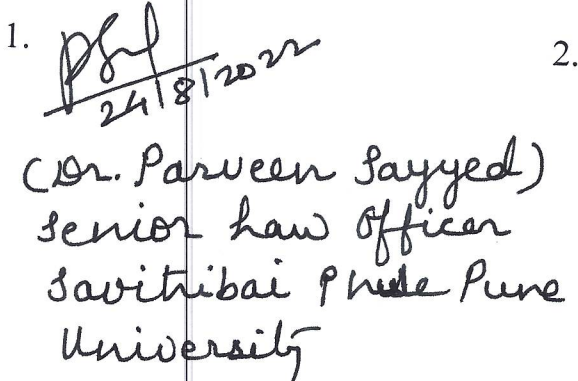 1.
2.
24/8/2022
(Dr. Parveen Sayyed)
Senior Law Officer
Savitribai Phule Pune
University